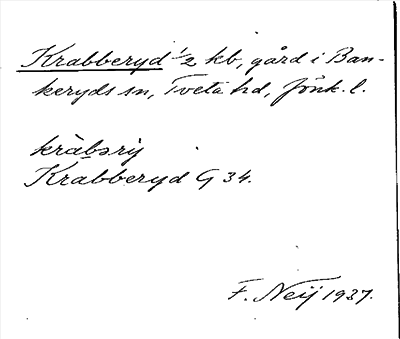 Krabberyd 1/2 kb, gård i Ban-
keryds sn, Tveta hd, Jönk. l.
kràbsrỳ
Krabberyd G 34.
F. Neij 1937.